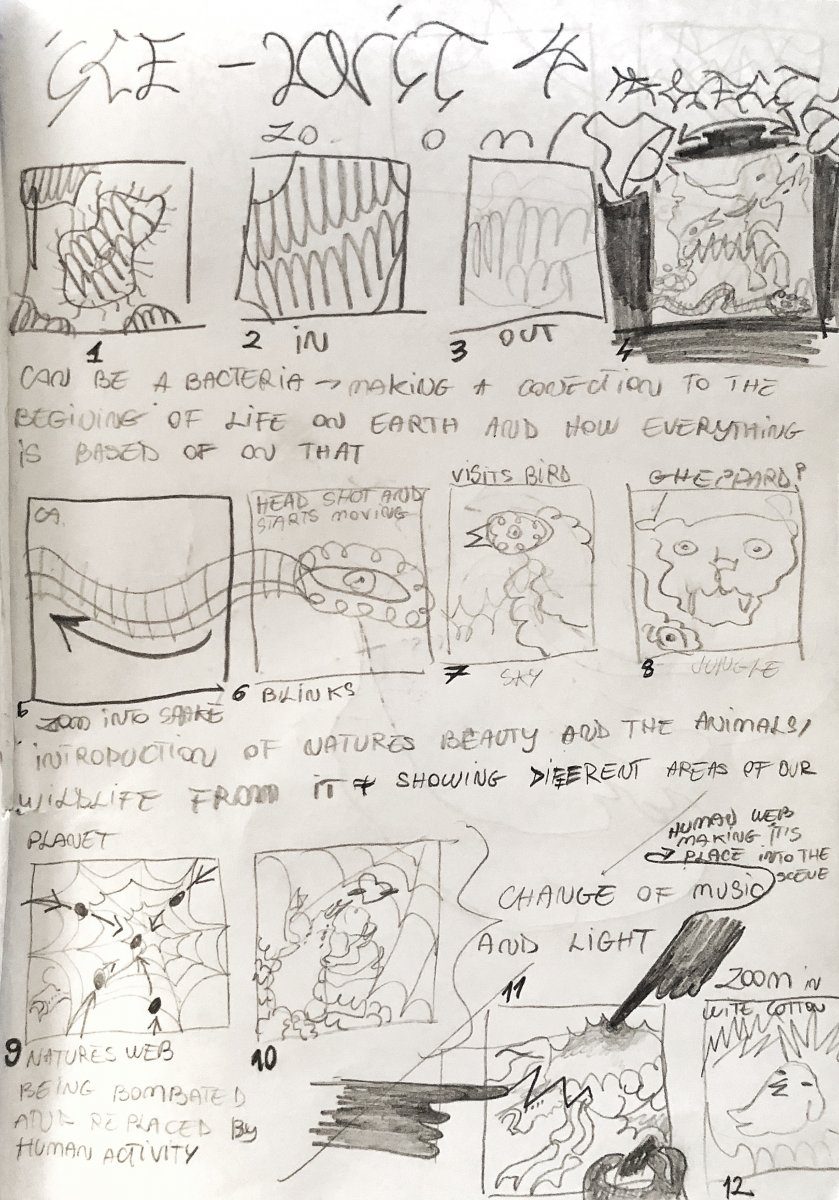 ZO. OM
1
2 IN
3 OUT
4
CAN BE A BACTERIA → MAKING A CONECTION TO THE
BEGINING OF LIFE ON EARTH AND HOW EVERYTHING
IS BASED OF ON THAT
HEAD SHOT AND
STARTS MOVING
VISITS BIRD
GHEPPARD?
5 ZOOM INTO SNAKE
6 BLINKS
7 SKY
8 JUNGLE
INTRODUCTION OF NATURES BEAUTY AND THE ANIMALS/
WILDLIFE FROM IT + SHOWING DIFFERENT AREAS OF OUR
PLANET
HUMAN WEB
MAKING ITIS
PLACE INTO THE
SCENE
CHANGE OF MUSIC
AND LIGHT
9 NATURES WEB
BEING BOMBATED
AND REPLACED By
HUMAN ACTIVITY
10
11
ZOOM IN
WITE COTTON
12